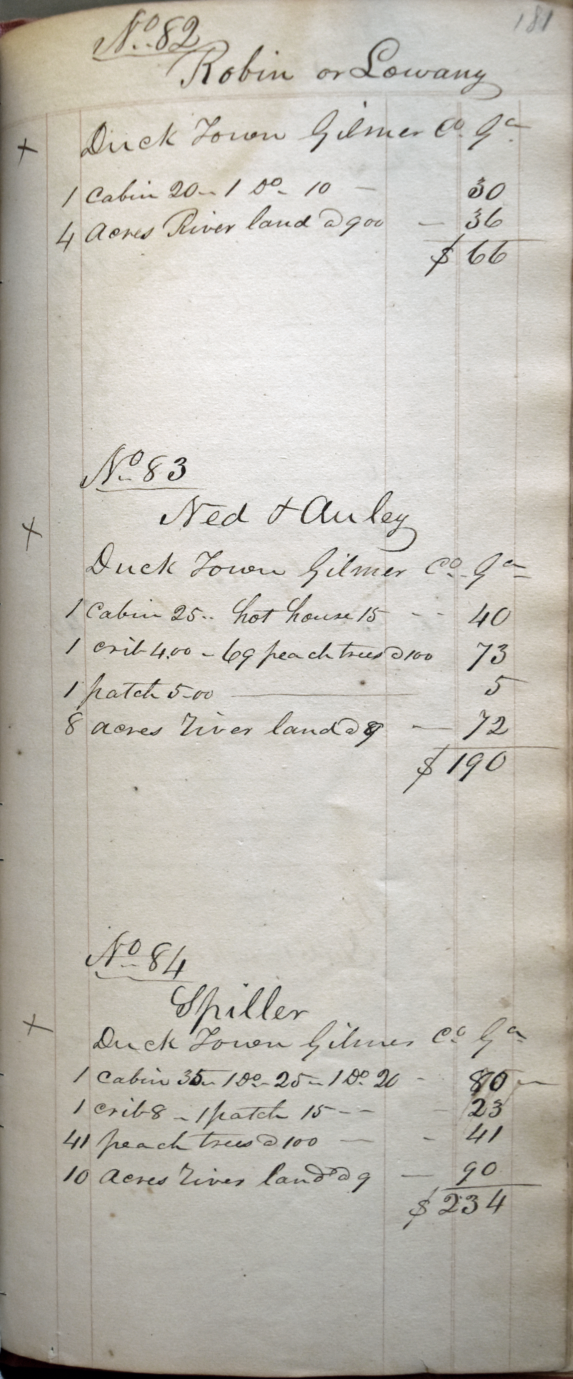 181
No. 82
Robin or Lowany
+ Duck Town Gilmer Co. Ga.
1 cabin 20 - 1 Do - 10 — 30
4 acres River land @ 900 — 36
$ 66
No. 83
Ned & Auley
+ Duck Town Gilmer Co. Ga
1 cabin 25.. hot house 15 - - 40
1 crib 4.00 - 69 peach trees @ 100 73
1 patch 5.00 — 5
8 acres river land @ 9 — 72
$ 190
No. 84
Spiller
+ Duck Town Gilmer Co. Ga
1 cabin 35 - 1 Do - 25 - 1 Do. 20 - 80
1 crib 8 - 1 patch 15 - - - 23
41 peach trees @ 100 — - 41
10 acres river land @ 9 — 90
$ 234